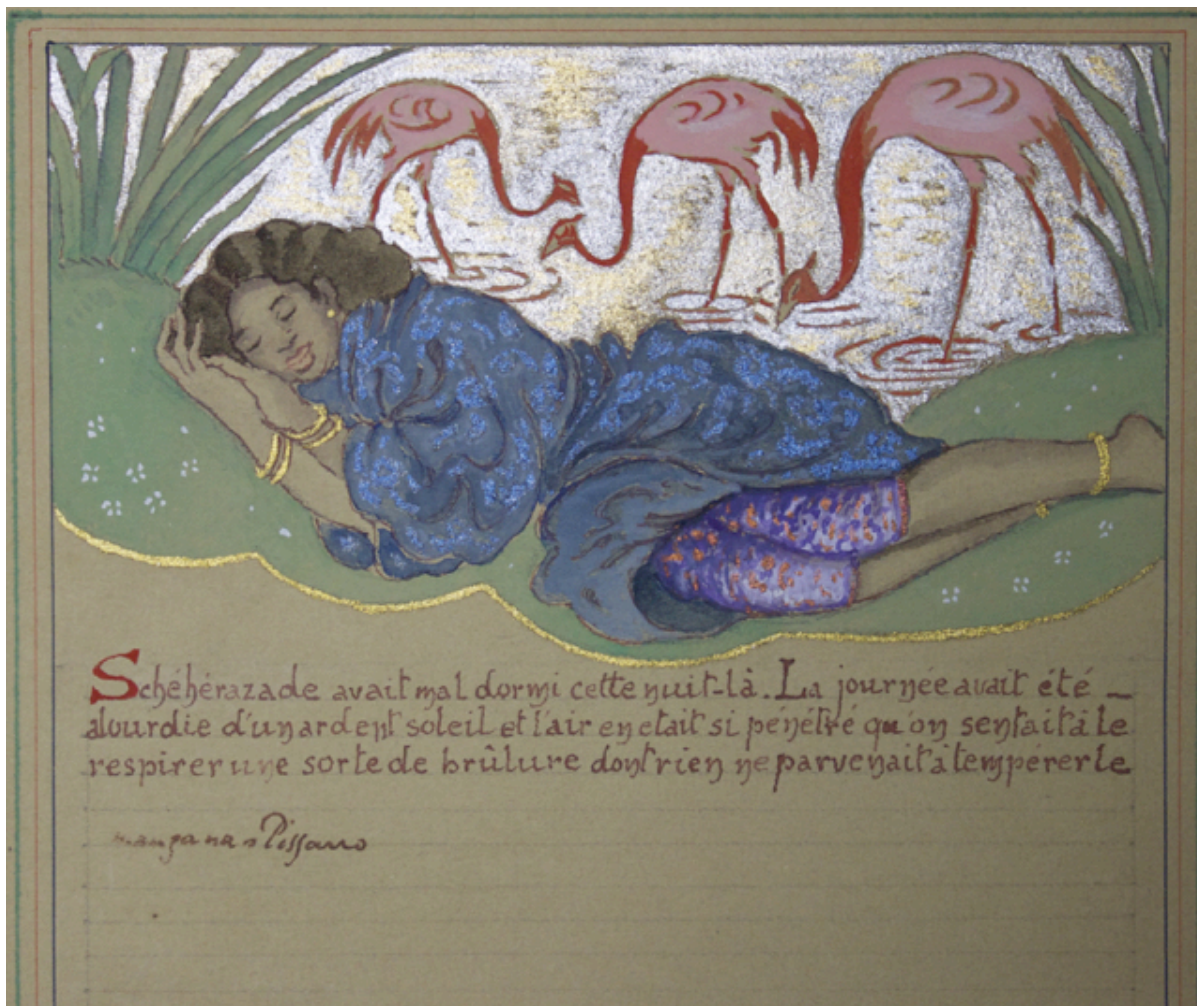 Schéhérazade avait mal dormi cette nuit-là. La journée avait été _
alourdie d'un ardent soleil et l'air en etait si pénétré qu'on sentait à le
respirer une sorte de brûlure dont rien ne parvenait à tempérer le
manzana Pissarro